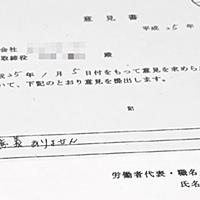 意見書
平成 25 年
会社
取締役 殿
成 25 年 1 月 5 日付をもって意見を求めら
いて、下記のとおり意見を提出します。
記
異議ありません
労働者代表・職名
氏名